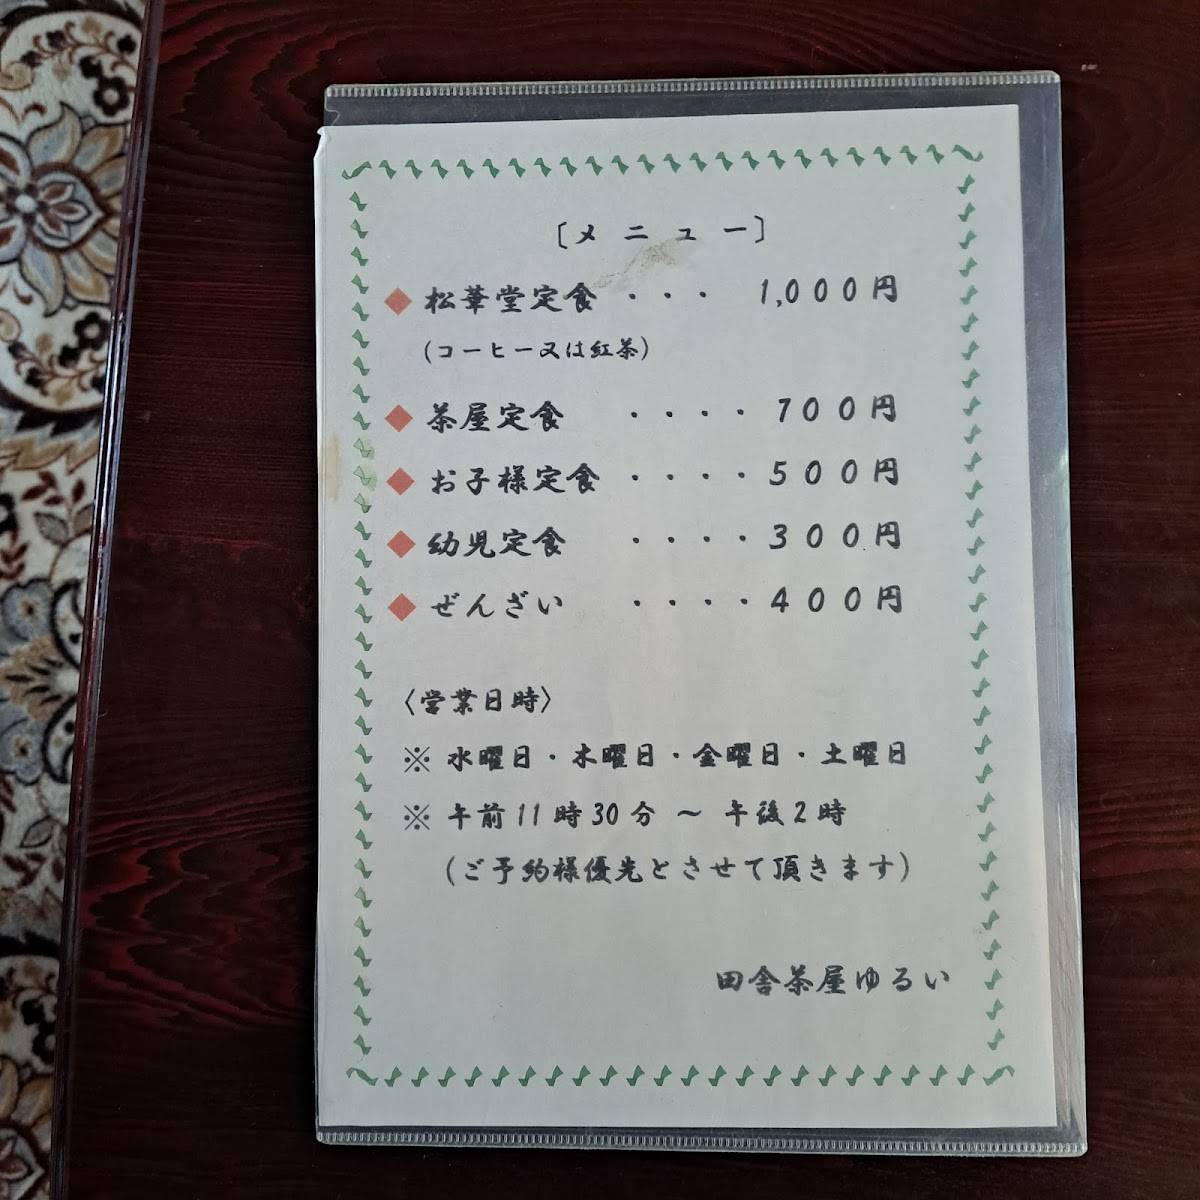 ［メニュー］
◆ 松華堂定食 ・・・ 1,000円
(コーヒー又は紅茶)
◆ 茶屋定食 ・・・・ 700円
◆ お子様定食 ・・・・ 500円
◆ 幼児定食 ・・・・ 300円
◆ ぜんざい ・・・・ 400円
〈営業日時〉
※ 水曜日・木曜日・金曜日・土曜日
※ 午前11時30分 ～ 午後2時
(ご予約様優先とさせて頂きます)
田舎茶屋ゆるい